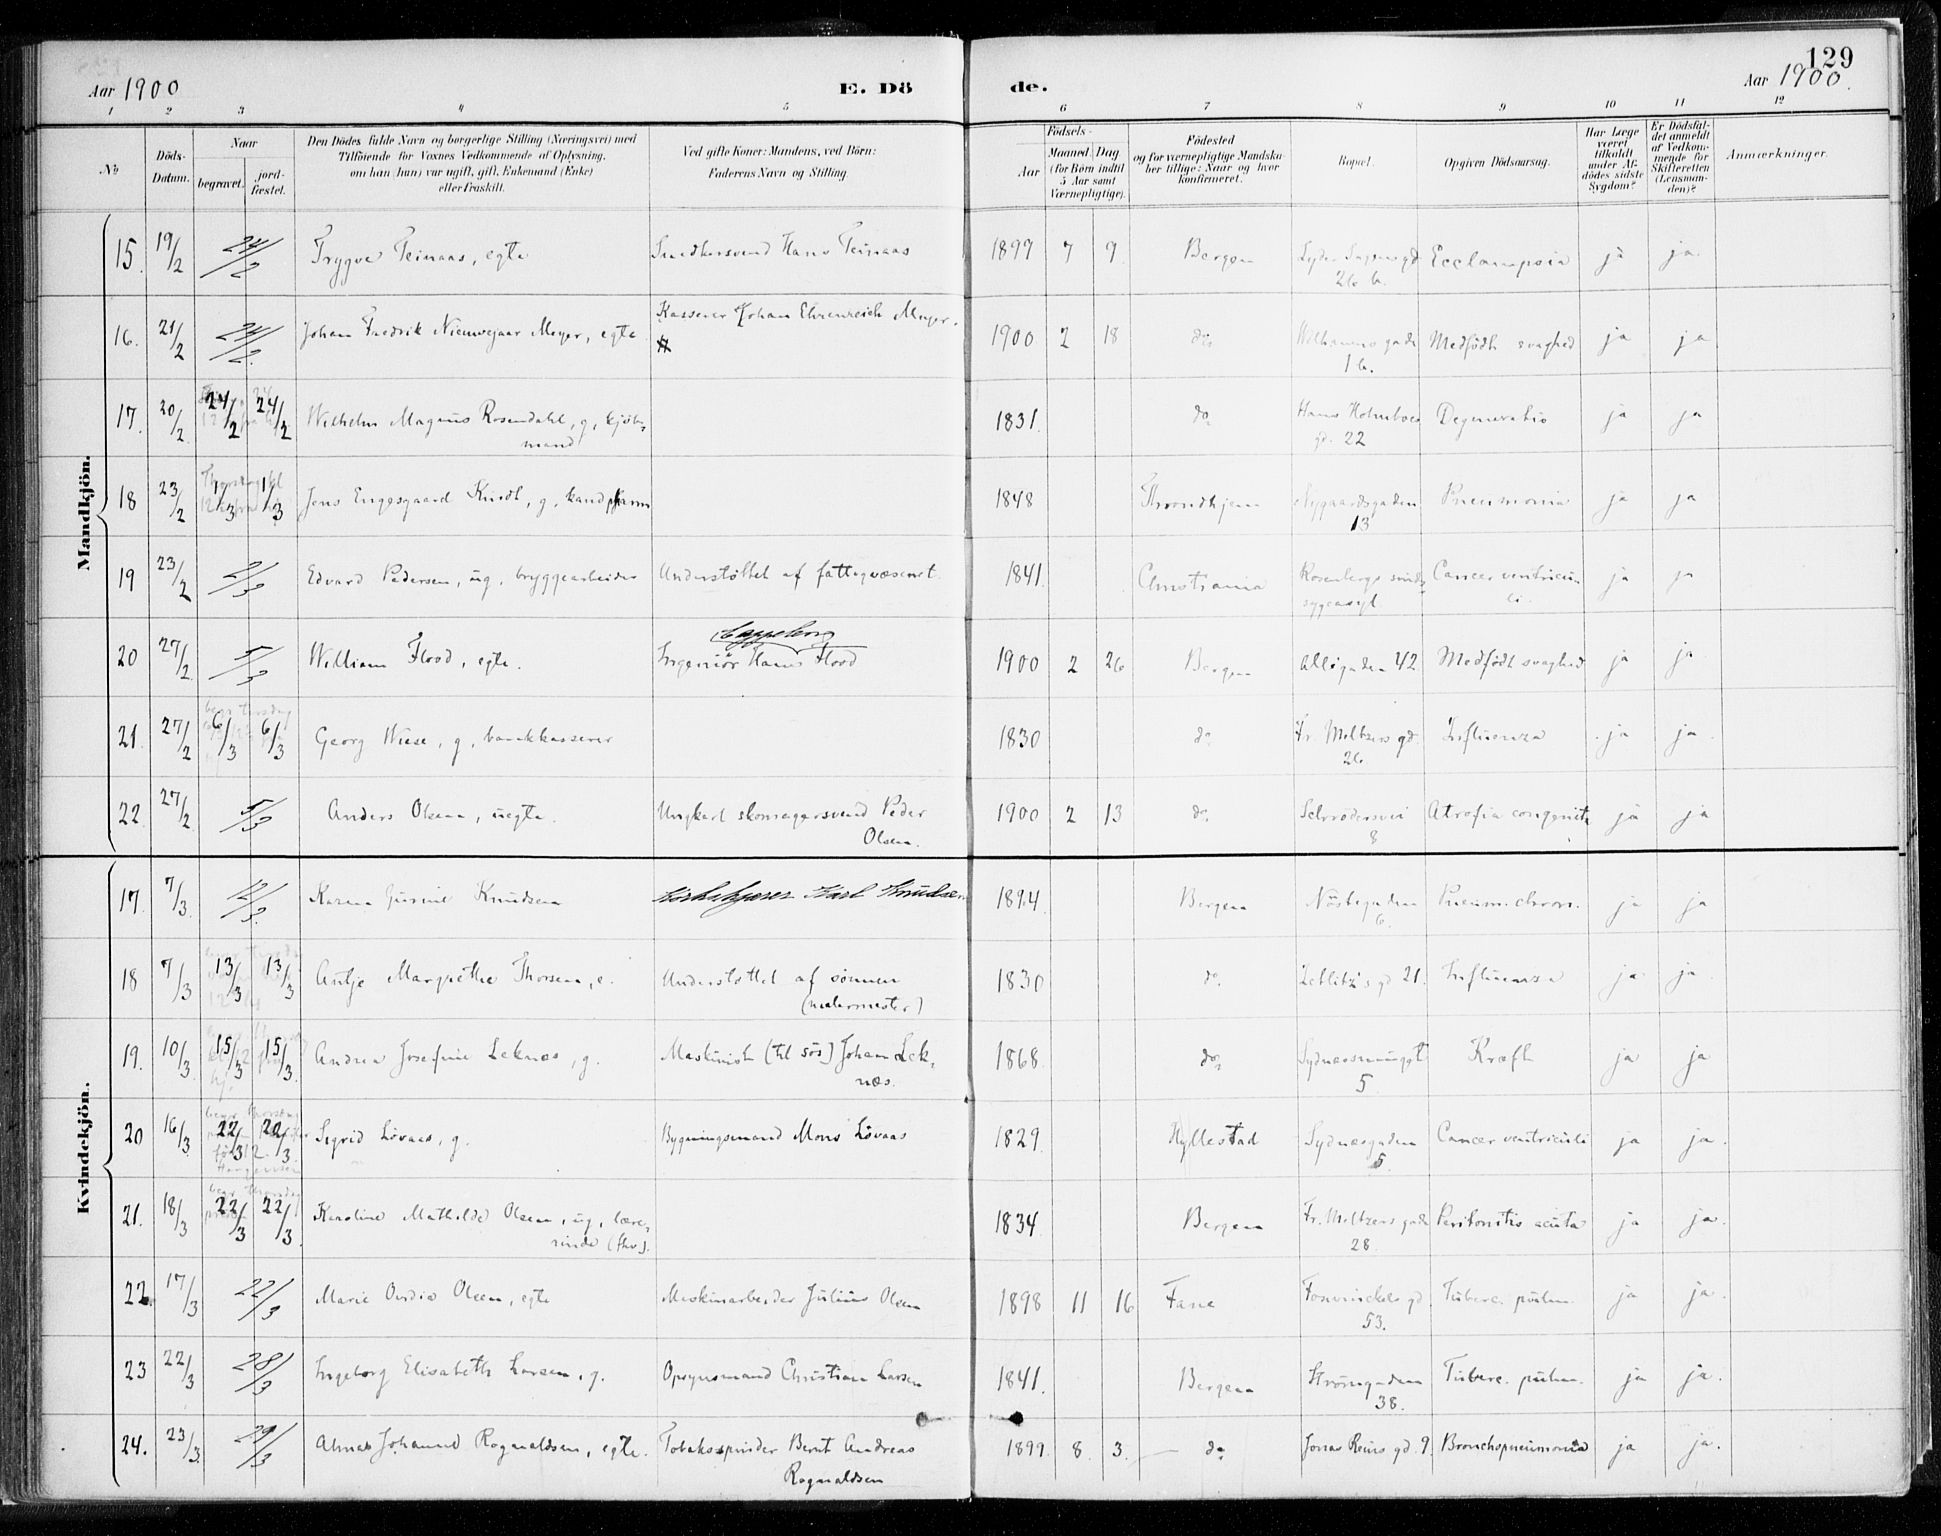 129
Aar 1900
E. Dö
de.
Aar 1900.
1 2 3 4 5 6 7 8 9 10 11 12
No
Döds-Datum.
Naar
begravet.
jordfæstet.
Den Dödes fulde Navn og borgerlige Stilling (Næringsvei) med
Tilföiende for Voxnes Vedkommende af Oplysning,
om han (hun) var ugift, gift, Enkemand (Enke)
eller fraskilt.
Ved gifte Koner: Mandens, ved Börn:
Faderens Navn og Stilling.
Födsels-
Aar
Maaned Dag
(for Börn indtil
5 Aar samt
Værnepligtige).
Födested
og for værnepligtige Mandskaber tillige: Naar og hvor
konfirmeret.
Bopæl.
Opgiven Dödsaarsag.
Har Læge
været
tilkaldt
under Afdödes sidste
Sygdom?
Er Dödsfaldet anmeldt
af Vedkommende for
Skifteretten
(Lensmanden)?
Anmærkninger.
Mandkjön.
15. 19/2 24/2 Trygve Teinaas, egte Snedkersvend Hans Teinaas 1899 7 9 Bergen 26 b. Ecclampsia ja ja.
16. 21/2 24/2. Johan Fredrik Nieuwejaar Meyer, egte Kasserer Johan Ehrenreich Meyer. 1900 2 18 do. 1 b. Medfödt svaghed ja ja
17. 20/2. 24/2 24/2 Wilhelm Magnus Rosendahl, g, kjöbmand 1831. do. Hans Holmboes gd. 22 Degeneratio ja ja
18 23/2 1/3 1/3 Jens Engesgaard Kindt, g. kand. pharm 1848 Throndhjem Nygaardsgaden 13 Pneumonia ja ja
19 23/2 2/3 Edvard Pedersen, ug, bryggearbeider Understöttet af fattigvæsenet. 1841. Christiania Rosenbergs sindssygeasyl. Cancer ventriculi. ja ja
20 27/2. 5/3 William Flood, egte. Ingeniör Hans Cappelborg Flood 1900 2 26 Bergen Allégaden 42. Medfödt svaghed ja ja
21. 27/2 6/3 6/3 Georg Wiese, g, bankkasserer 1830 do. Fr. Meltzers gd. 26 Influenza ja ja.
22. 27/2 5/3 Anders Olsen, uegte. Ungkarl skomagersvend Peder Olsen. 1900 2 13 do. 8 Atrofia congenita ja ja
Kvindekjön.
17. 7/3. 12/3. Karen Gurine Knudsen Karl Knudsen 1894. Bergen Nöstegaden 6. Pneum. chron. ja ja
18 7/3 13/3 13/3 Antje Margrethe Thorsen, e. Understöttet af sönnen (malermester) 1830 do. Zetlitz's gd 21. Influenza ja ja.
19. 10/3. 15/3 15/3. Andrea Josefine Leknæs, g. Maskinist (til sös) Johan Leknæs. 1868. do. 5 Kræft ja ja
20 16/3 22/3 22/3. Sigrid Lövaas, g. Bygningsmand Mons Lövaas 1829. Hyllestad Sydnesgaden 5. Cancer ventriculi ja ja.
21. 18/3 22/3 22/3. Karoline Mathilde Olsen, ug, lærerinde (fhv.). 1834. Bergen Fr. Meltzers gade 28. Peritonitis acuta ja ja.
22. 17/3 22/3 Marie Ovidia Olsen, egte Maskinarbeider Julius Olsen 1898 11 16 Fane Fosswinckels gd 53. Tuberc. pulm. ja ja.
23 22/3 28/3 Ingeborg Elisabeth Larsen, g. Opsynsmand Christian Larsen 1841. Bergen Strömgaden 38. Tuberc. pulm. ja ja.
24. 23/3. 29/3 Johanne Rognaldsen, egte. Tobakspinder Bernt Andreas Rognaldsen 1899. 8 3. do Jonas Reins gd. 9. Bronchopneumonia ja ja.